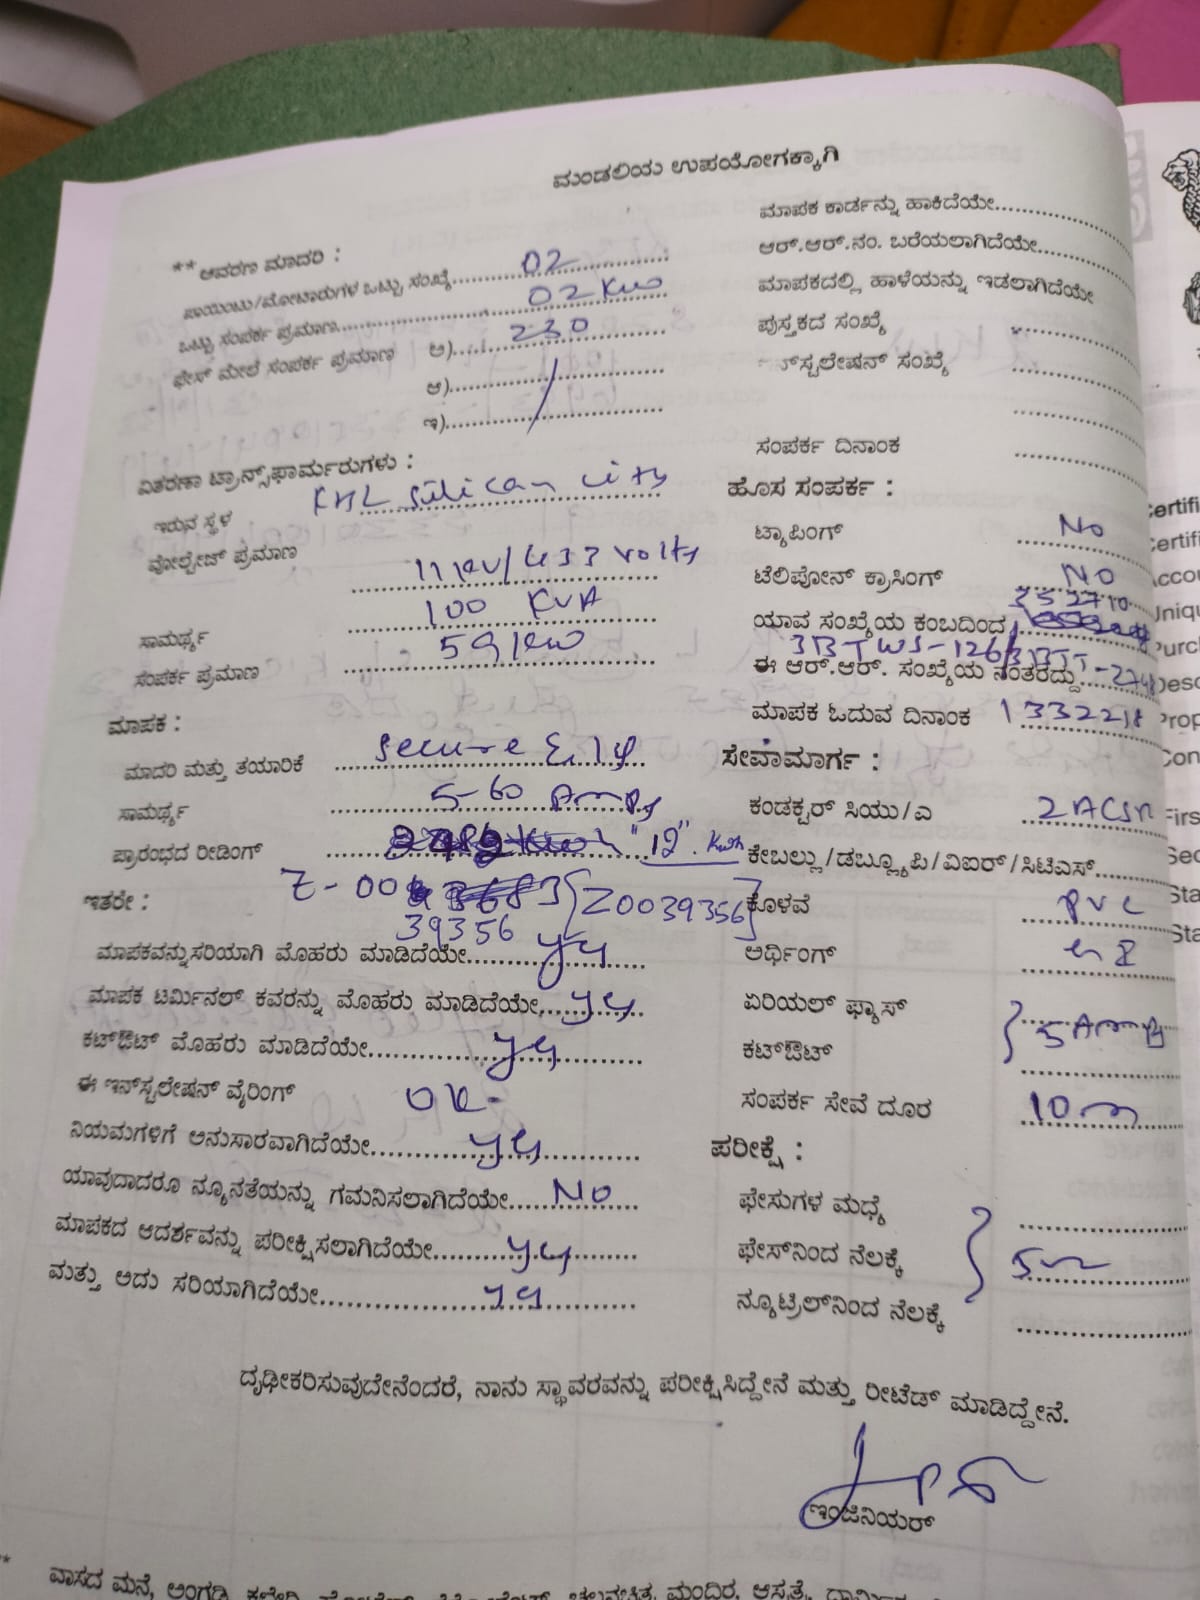 ಮಂಡಲಿಯ ಉಪಯೋಗಕ್ಕಾಗಿ
**ಆವರಣ ಮಾದರಿ :
ಪಾಯಿಂಟು/ಮೋಟಾರುಗಳ ಒಟ್ಟು ಸಂಖ್ಯೆ 02
ಒಟ್ಟು ಸಂಪರ್ಕ ಪ್ರಮಾಣ 02 KW
ಫೇಸ್ ಮೇಲೆ ಸಂಪರ್ಕ ಪ್ರಮಾಣ ಅ) 230
ಆ)
ಇ)
ವಿತರಣಾ ಟ್ರಾನ್ಸ್‌ಫಾರ್ಮರುಗಳು :
ಇರುವ ಸ್ಥಳ silican city
ವೋಲ್ಟೇಜ್ ಪ್ರಮಾಣ 11 KV/433 volts
ಸಾಮರ್ಥ್ಯ 100 KVA
ಸಂಪರ್ಕ ಪ್ರಮಾಣ 59 KW
ಮಾಪಕ :
ಮಾದರಿ ಮತ್ತು ತಯಾರಿಕೆ secure
ಸಾಮರ್ಥ್ಯ 5-60 Amps
ಪ್ರಾರಂಭದ ರೀಡಿಂಗ್ "12" kwh
ಇತರೇ : 39356 [Z0039356]
ಮಾಪಕವನ್ನು ಸರಿಯಾಗಿ ಮೊಹರು ಮಾಡಿದೆಯೇ yes
ಮಾಪಕ ಟರ್ಮಿನಲ್ ಕವರನ್ನು ಮೊಹರು ಮಾಡಿದೆಯೇ yes
ಕಟ್‌ಔಟ್ ಮೊಹರು ಮಾಡಿದೆಯೇ yes
ಈ ಇನ್‌ಸ್ಟಲೇಷನ್ ವೈರಿಂಗ್ OK-
ನಿಯಮಗಳಿಗೆ ಅನುಸಾರವಾಗಿದೆಯೇ yes
ಯಾವುದಾದರೂ ನ್ಯೂನತೆಯನ್ನು ಗಮನಿಸಲಾಗಿದೆಯೇ NO
ಮಾಪಕದ ಆದರ್ಶವನ್ನು ಪರೀಕ್ಷಿಸಲಾಗಿದೆಯೇ yes
ಮತ್ತು ಅದು ಸರಿಯಾಗಿದೆಯೇ yes
ಮಾಪಕ ಕಾರ್ಡನ್ನು ಹಾಕಿದೆಯೇ
ಆರ್.ಆರ್.ನಂ. ಬರೆಯಲಾಗಿದೆಯೇ
ಮಾಪಕದಲ್ಲಿ ಹಾಳೆಯನ್ನು ಇಡಲಾಗಿದೆಯೇ
ಪುಸ್ತಕದ ಸಂಖ್ಯೆ
ನ್‌ಸ್ಟಲೇಷನ್ ಸಂಖ್ಯೆ
ಸಂಪರ್ಕ ದಿನಾಂಕ
ಹೊಸ ಸಂಪರ್ಕ :
ಟ್ಯಾಪಿಂಗ್ No
ಟೆಲಿಪೋನ್ ಕ್ರಾಸಿಂಗ್ NO
ಯಾವ ಸಂಖ್ಯೆಯ ಕಂಬದಿಂದ
ಈ ಆರ್.ಆರ್. ಸಂಖ್ಯೆಯ ನಂತರದ್ದು
ಮಾಪಕ ಓದುವ ದಿನಾಂಕ
ಸೇವಾಮಾರ್ಗ :
ಕಂಡಕ್ಟರ್ ಸಿಯು/ಎ 2 ACSR
ಕೇಬಲ್ಲು/ಡಬ್ಲ್ಯೂಪಿ/ವಿಐರ್/ಸಿಟಿಎಸ್
ಕೊಳವೆ PVC
ಅರ್ಥಿಂಗ್
ಏರಿಯಲ್ ಫ್ಯಾಸ್
ಕಟ್‌ಔಟ್ 5 Amps
ಸಂಪರ್ಕ ಸೇವೆ ದೂರ 10 m
ಪರೀಕ್ಷೆ :
ಫೇಸುಗಳ ಮಧ್ಯೆ
ಫೇಸ್‌ನಿಂದ ನೆಲಕ್ಕೆ
ನ್ಯೂಟ್ರಿಲ್‌ನಿಂದ ನೆಲಕ್ಕೆ
ದೃಢೀಕರಿಸುವುದೇನೆಂದರೆ, ನಾನು ಸ್ಥಾವರವನ್ನು ಪರೀಕ್ಷಿಸಿದ್ದೇನೆ ಮತ್ತು ರೀಟೆಡ್ ಮಾಡಿದ್ದೇನೆ.
ಇಂಜಿನಿಯರ್
** ವಾಸದ ಮನೆ, ಅಂಗಡಿ